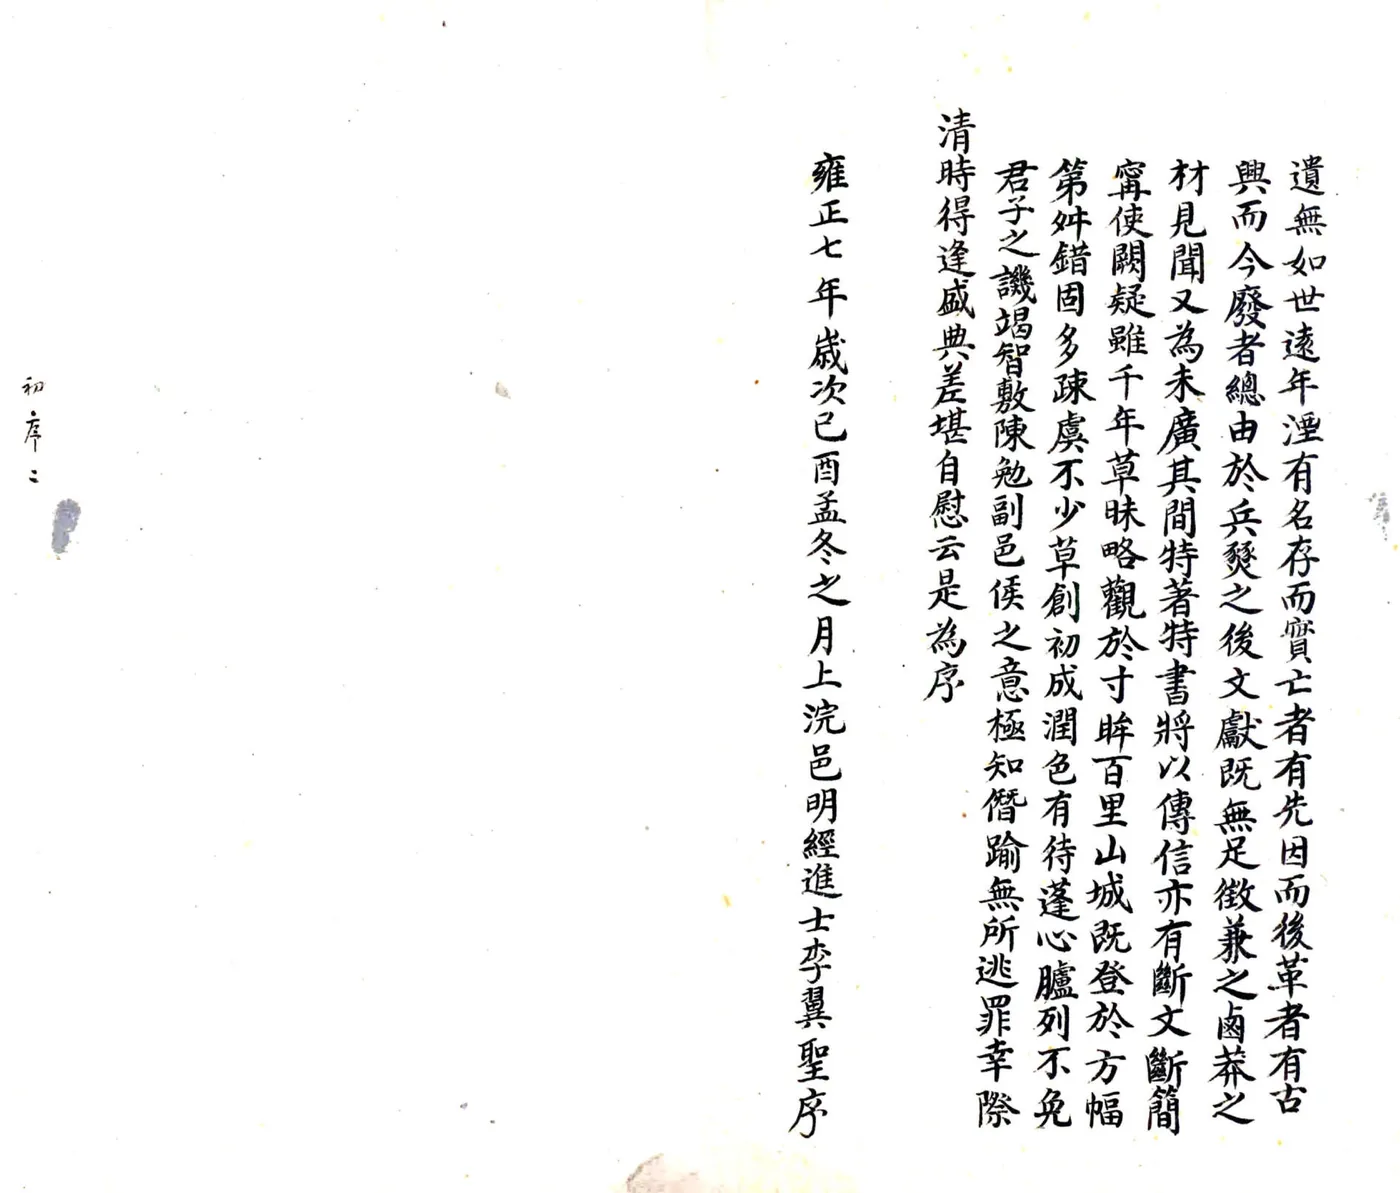 遺無如世遠年湮有名存而實亡者有先因而後革者有古
興而今廢者總由於兵燹之後文獻既無足徵兼之鹵莽之
材見聞又為未廣其間特著特書將以傳信亦有斷文斷簡
甯使闕疑雖千年草昧略觀於寸眸百里山城既登於方幅
第舛錯固多疎虞不少草創初成潤色有待蓬心臚列不免
君子之譏竭智敷陳勉副邑侯之意極知僭踰無所逃罪幸際
清時得逢盛典差堪自慰云是為序
雍正七年歲次己酉孟冬之月上浣邑明經進士李翼聖序
初序二